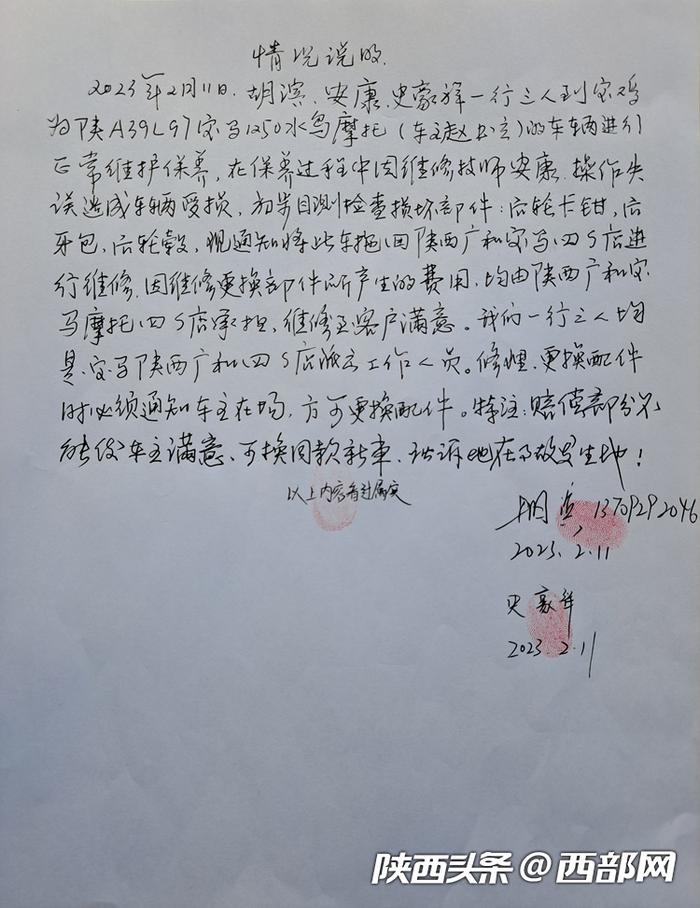 情况说明
2023年2月11日.胡滨、安康、史豪祥一行三人到宝鸡
为陕A39L97宝马1250水鸟摩托(车主赵)的车辆进行
正常维护保养,在保养过程中因维修技师安康.操作失
误造成车辆受损,初步目测检查损坏部件:后轮卡钳,后
牙包,后轮毂,现通知将此车拖回陕西广和宝马四S店进
行维修.因维修更换部件所产生的费用.均由陕西广和宝
马摩托四S店承担,维修至客户满意。我们一行三人均
是宝马陕西广和四S店派出工作人员。修理、更换配件
时必须通知车主在场,方可更换配件。特注:赔偿部分不
能使车主满意、可换同款新車、诉地在事故发生地!
以上内容看过属实
胡滨 13709292046
2023.2.11
史豪祥
2023.2.11
陕西头条@西部网